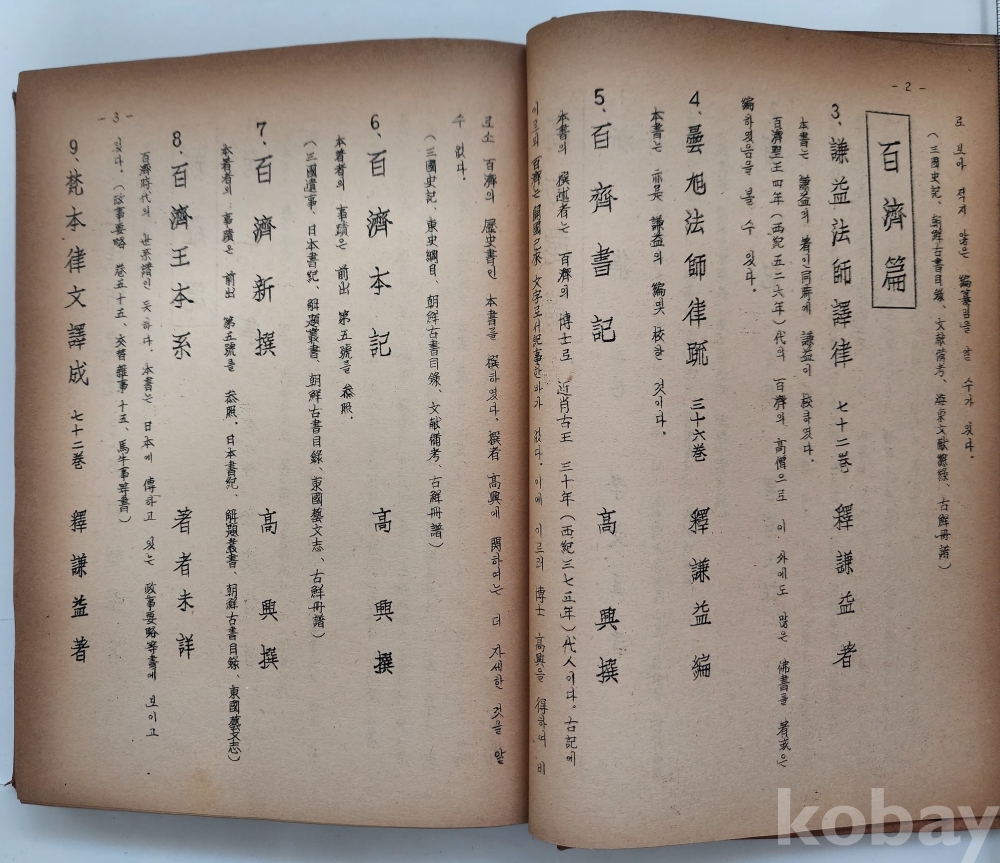 - 2 -
로 보아 작지 않은 編纂임을 알 수가 있다.
(三國史記、朝鮮古書目錄、文獻備考、海東文獻總錄、古鮮冊譜)
百濟篇
3、謙益法師譯律 七十二巻 釋謙益 者
本書는 謙益의 著인 同時에 謙益이 校하였다.
百濟聖王四年(西紀五二六年)代의 百濟의 高僧으로 이 外에도 많은 佛書를 著或은
編하였음을 볼 수 있다.
4、曇旭法師律疏 三十六巻 釋謙益 編
本書는 亦是 謙益의 編및 校한 것이다.
5、百齊書記 高興撰
本書의 撰述者는 百濟의 博士로 近肖古王 三十年(西紀三七五年)代人이다。古記에
이르되 百濟는 開國已來 文字로서 記事한바가 없다. 이에 이르러 博士 高興을 得하여 비
- 3 -
로소 百濟의 歷史書인 本書를 撰하였다. 撰者 高興에 関하여는 더 자세한 것을 알
수 없다.
(三國史記、東史綱目、朝鮮古書目錄、文献備考、古鮮冊譜)
6、百濟本記 高興撰
本著者의 事蹟은 前出 第五號를 叅照.
(三國遺事、日本書紀、解題叢書、朝鮮古書目錄、東國藝文志、古鮮冊譜)
7、百濟新撰 高興撰
本著者의 事蹟은 前出 第五號를 叅照、日本書紀、解題叢書、朝鮮古書目錄、東國藝文志)
8、百濟王本系 著者未詳
百濟時代의 世系譜인 듯하다. 本書는 日本에 傳하고 있는 政事要略等書에 보이고
있다.(政事要略 卷五十五、交替雜事十五、馬牛事等書)
9、梵本律文譯成 七十二巻 釋謙益著
kobay